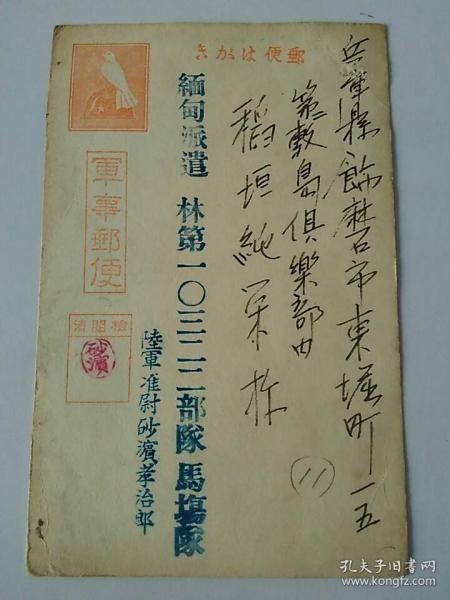 郵便はがき
兵庫縣飾磨市東堀町一五
第敷島倶樂部内
稲垣純栄様
(11)
緬甸派遣 林第一〇三二二部隊馬場隊
陸軍准尉砂濱孝治郎
軍事郵便
検閲済
砂濱
孔夫子旧书网
www.kongfz.com